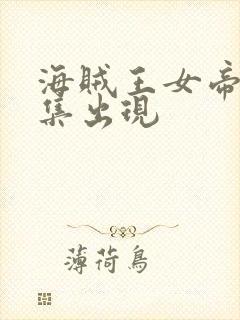 海賊王女帝
集出現
薄荷鳥